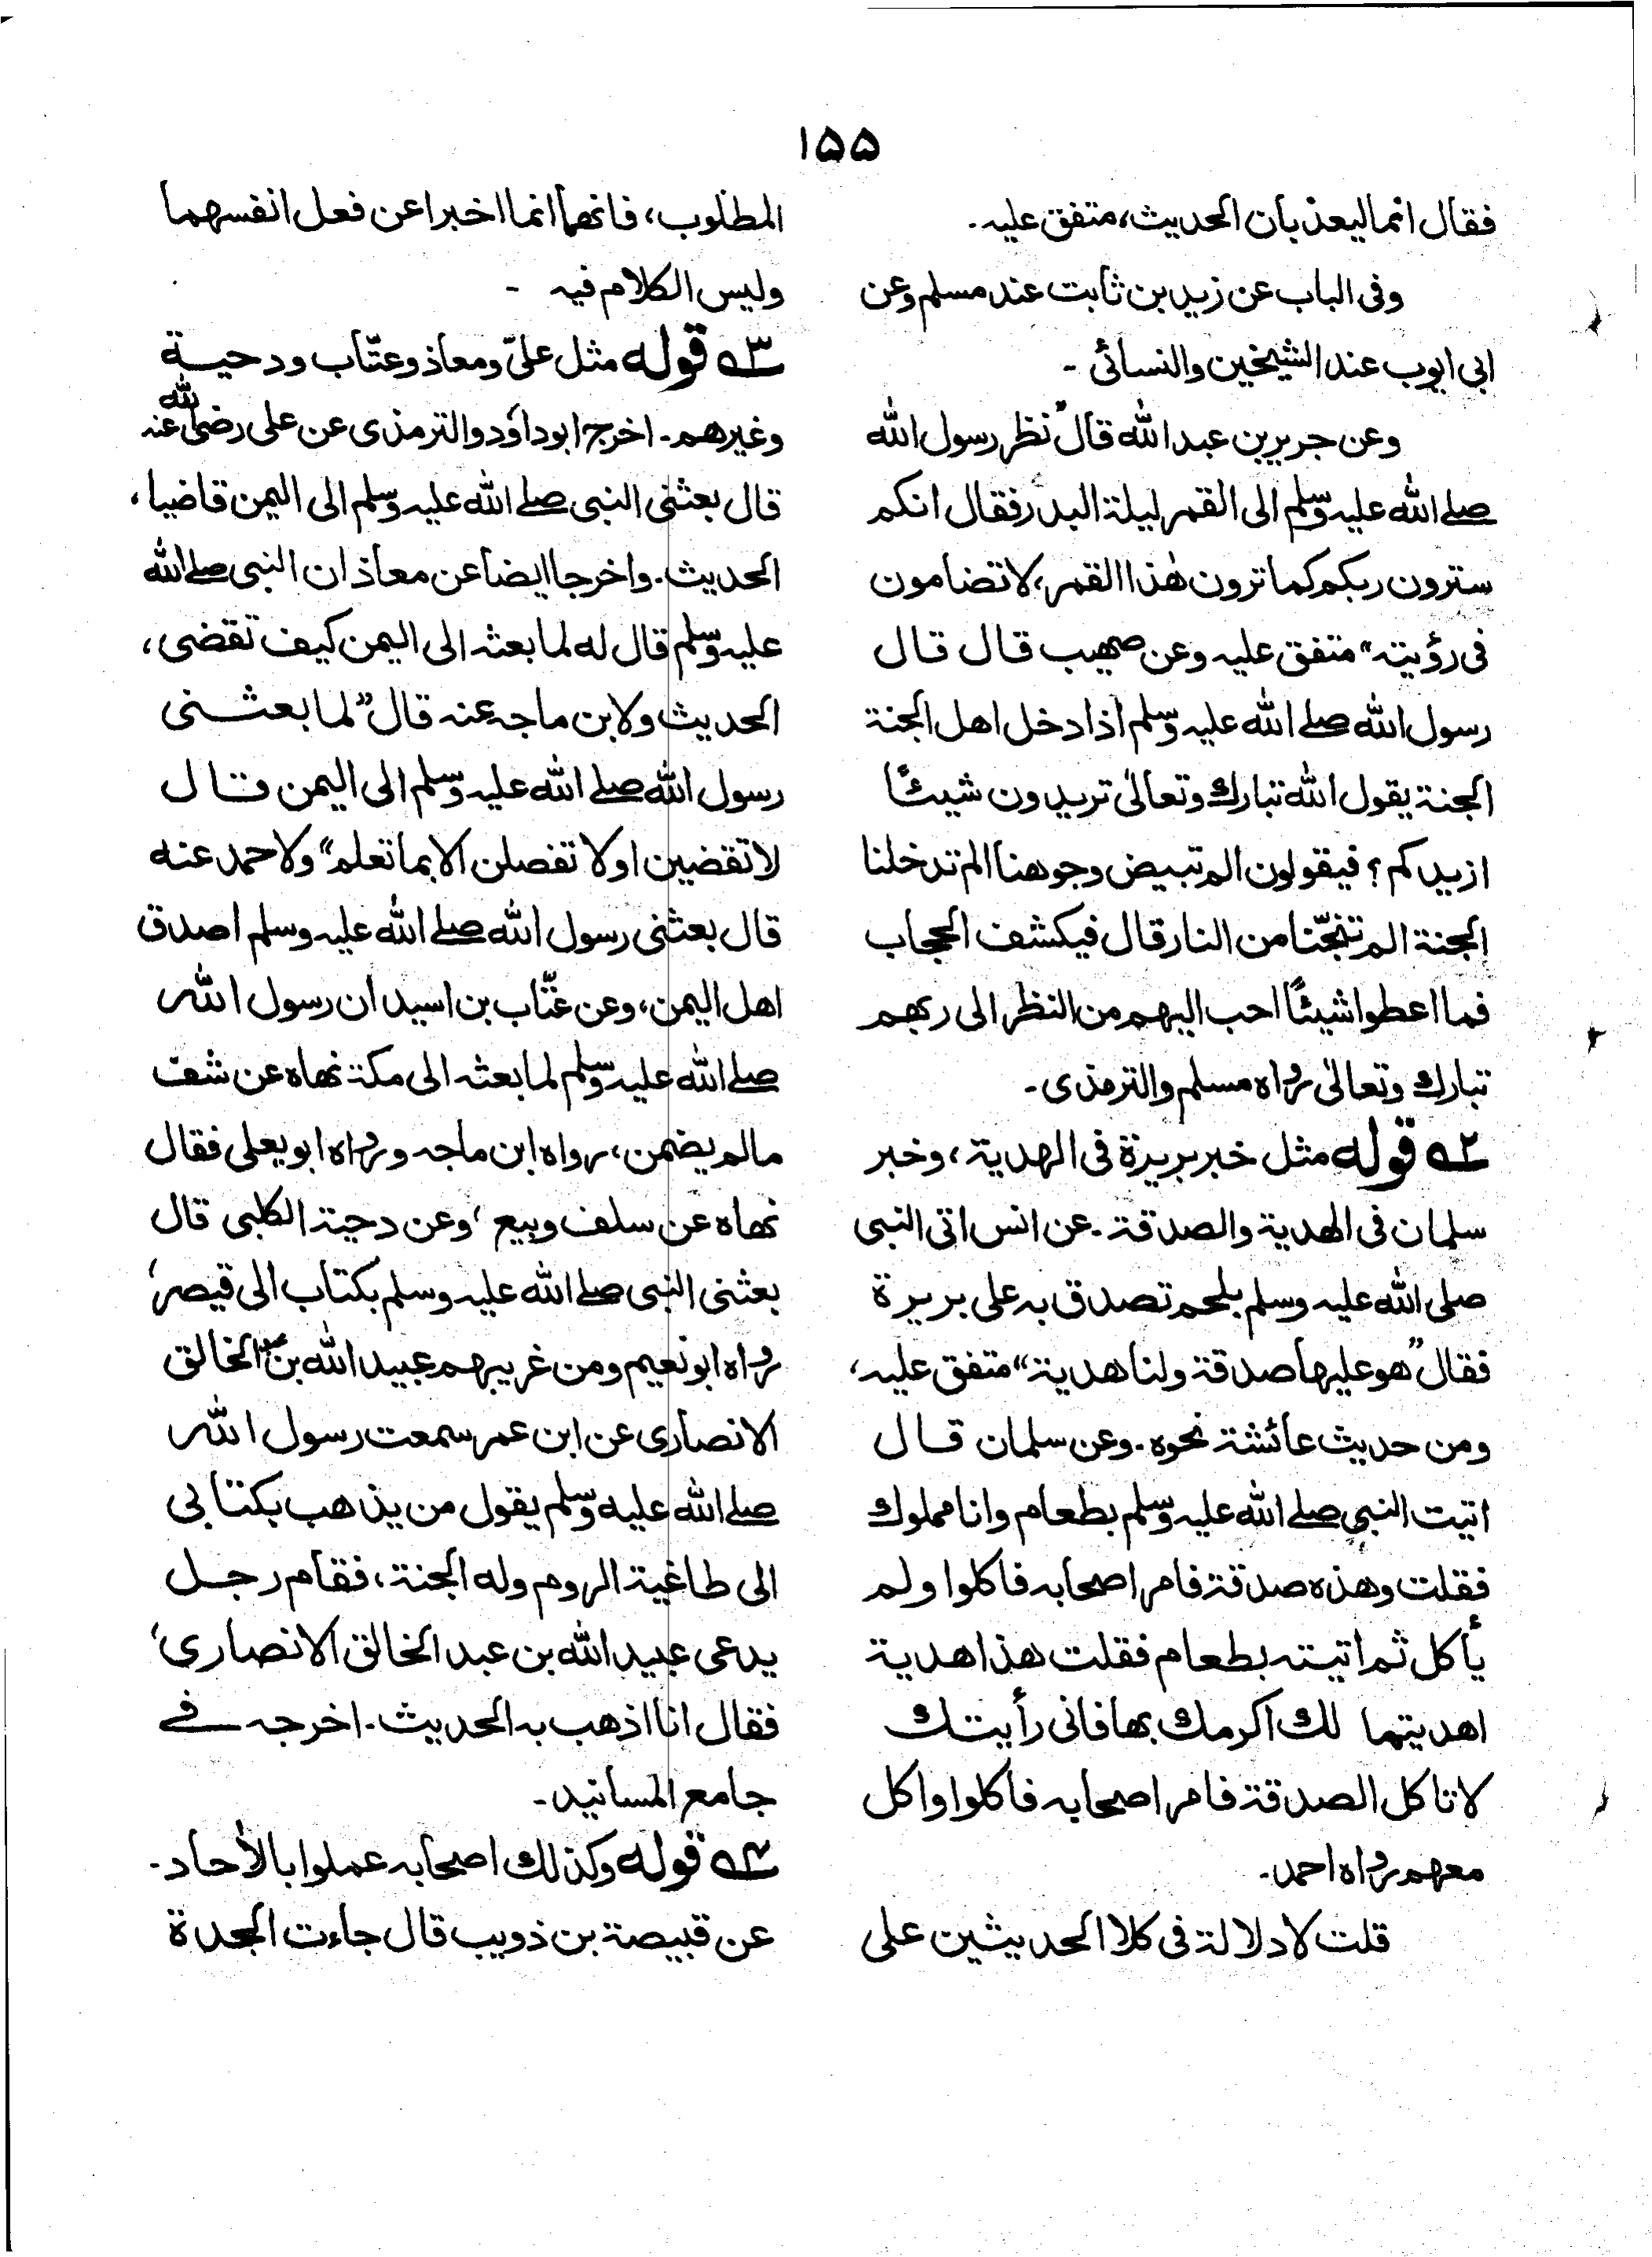 ۱۵۵
فقال انما ليعذبان الحديث، متفق عليه۔
وفى الباب عن زيد بن ثابت عند مسلم وعن
ابى ايوب عند الشيخين والنسائى ۔
وعن جرير بن عبد الله قال "نظر رسول الله
صلے الله عليه وسلم الى القمر ليلة البدر فقال انكم
سترون ربكم كما ترون هٰذا القمر، لا تضامون
فى رؤيته" متفق عليه وعن صهيب قال قال
رسول الله صلے الله عليه وسلم اذا دخل اهل الجنة
الجنة يقول الله تبارك وتعالىٰ تريدون شيئًا
ازيدكم؟ فيقولون الم تبيض وجوهنا الم تدخلنا
الجنة الم تنجّنا من النار قال فيكشف الحجاب
فما اعطوا شيئًا احب اليهم من النظر الى ربهم
تبارك وتعالىٰ رواه مسلم والترمذى۔
۲ـه قوله مثل خبر بريرة فى الهدية، وخبر
سلمان فى الهدية والصدقة ۔ عن انس اتى النبى
صلى الله عليه وسلم بلحم تصدق به على بريرة
فقال "هو عليها صدقة ولنا هدية" متفق عليه،
ومن حديث عائشة نحوه۔ وعن سلمان قال
اتيت النبى صلے الله عليه وسلم بطعام وانا مملوك
فقلت وهذه صدقة فامر اصحابه فاكلوا ولم
يأكل ثم اتيته بطعام فقلت هذا هدية
اهديتها لك اكرمك بها فانى رأيتك
لا تاكل الصدقة فامر اصحابه فاكلوا واكل
معهم رواه احمد۔
قلت لا دلالة فى كلا الحديثين على
المطلوب، فانهما انما اخبرا عن فعل انفسهما
وليس الكلام فيه ۔
۳ـه قوله مثل علىّ ومعاذ وعتّاب ودحية
وغيرهم۔ اخرج ابو داؤد والترمذى عن على رضى الله عنه
قال بعثنى النبى صلے الله عليه وسلم الى اليمن قاضيا،
الحديث۔ واخرجا ايضا عن معاذ ان النبى صلے الله
عليه وسلم قال له لما بعثه الى اليمن كيف تقضى،
الحديث ولابن ماجه عنه قال "لما بعثنى
رسول الله صلے الله عليه وسلم الى اليمن قال
لا تقضين اولا تفصلن الا بما تعلم" ولاحمد عنه
قال بعثنى رسول الله صلے الله عليه وسلم اصدق
اهل اليمن، وعن عتّاب بن اسيد ان رسول الله
صلے الله عليه وسلم لما بعثه الى مكة نهاه عن شف
مالم يضمن، رواه ابن ماجه ورواه ابو يعلى فقال
نهاه عن سلف وبيع، وعن دحية الكلبى قال
بعثنى النبى صلے الله عليه وسلم بكتاب الى قيصر،
رواه ابو نعيم ومن غريبهم عبيد الله بن عبد الخالق
الانصارى عن ابن عمر سمعت رسول الله
صلے الله عليه وسلم يقول من يذهب بكتابى
الى طاغية الروم وله الجنة، فقام رجل
يدعى عبيد الله بن عبد الخالق الانصارى،
فقال انا اذهب به الحديث۔ اخرجه فے
جامع المسانيد۔
۴ـه قوله وكذلك اصحابه عملوا بالأحاد۔
عن قبيصة بن ذويب قال جاءت الجدة